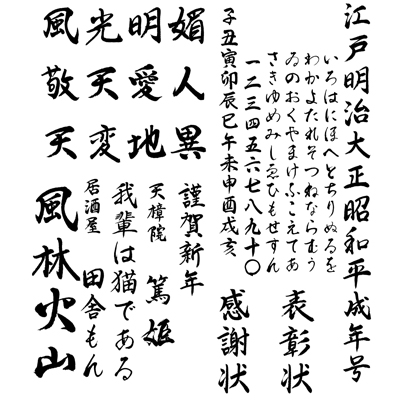 江戸明治大正昭和平成年号
いろはにほへとちりぬるを
わかよたれそつねならむう
ゐのおくやまけふこえてあ
さきゆめみしゑひもせすん
一二三四五六七八九十〇
子丑寅卯辰巳午未申酉戌亥
表彰状
感謝状
風光明媚
敬天愛人
天変地異
謹賀新年
天樟院 篤姫
我輩は猫である
居酒屋 田舎もん
風林火山